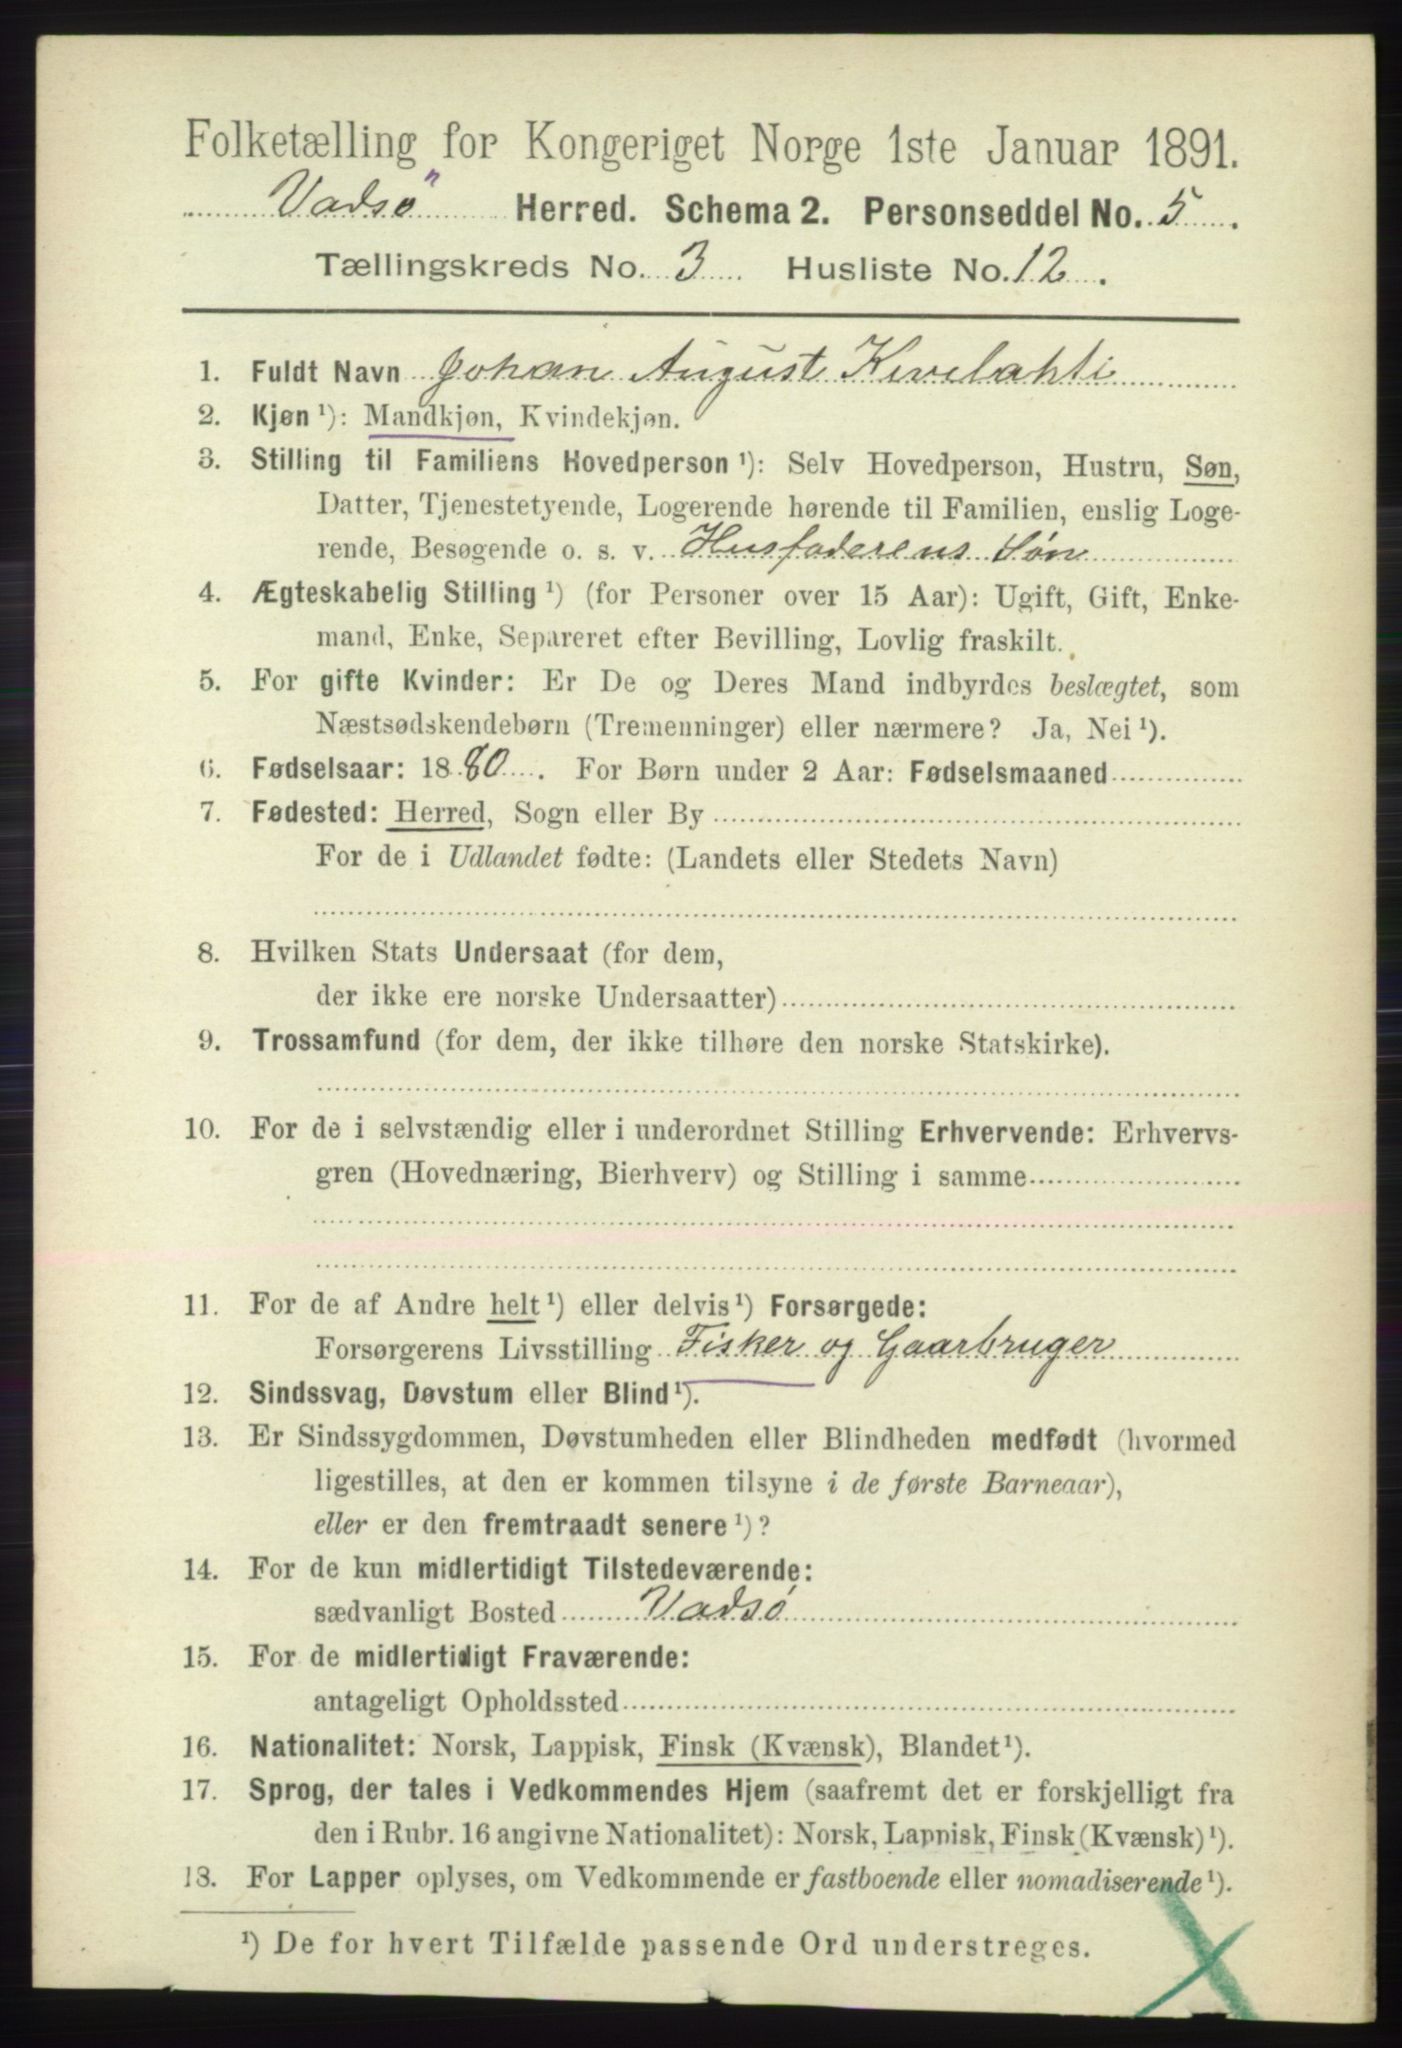 Folketælling for Kongeriget Norge 1ste Januar 1891.
Vadsø Herred. Schema 2. Personseddel No. 5.
Tællingskreds No. 3 Husliste No. 12.
1. Fuldt Navn Johan August Kivelahti
2. Kjøn ¹): Mandkjøn, Kvindekjøn.
3. Stilling til Familiens Hovedperson ¹): Selv Hovedperson, Hustru, Søn,
Datter, Tjenestetyende, Logerende hørende til Familien, enslig Loge-
rende, Besøgende o. s. v. Husfaderens Søn
4. Ægteskabelig Stilling ¹) (for Personer over 15 Aar): Ugift, Gift, Enke-
mand, Enke, Separeret efter Bevilling, Lovlig fraskilt.
5. For gifte Kvinder: Er De og Deres Mand indbyrdes beslægtet, som
Næstsødskendebørn (Tremenninger) eller nærmere? Ja, Nei ¹).
6. Fødselsaar: 1880. For Børn under 2 Aar: Fødselsmaaned
7. Fødested: Herred, Sogn eller By
For de i Udlandet fødte: (Landets eller Stedets Navn)
8. Hvilken Stats Undersaat (for dem,
der ikke ere norske Undersaatter)
9. Trossamfund (for dem, der ikke tilhøre den norske Statskirke).
10. For de i selvstændig eller i underordnet Stilling Erhvervende: Erhvervs-
gren (Hovednæring, Bierhverv) og Stilling i samme
11. For de af Andre helt ¹) eller delvis ¹) Forsørgede:
Forsørgerens Livsstilling Fisker og Gaarbruger
12. Sindssvag, Døvstum eller Blind ¹).
13. Er Sindssygdommen, Døvstumheden eller Blindheden medfødt (hvormed
ligestilles, at den er kommen tilsyne i de første Barneaar),
eller er den fremtraadt senere ¹)?
14. For de kun midlertidigt Tilstedeværende:
sædvanligt Bosted Vadsø
15. For de midlertidigt Fraværende:
antageligt Opholdssted
16. Nationalitet: Norsk, Lappisk, Finsk (Kvænsk), Blandet ¹).
17. Sprog, der tales i Vedkommendes Hjem (saafremt det er forskjelligt fra
den i Rubr. 16 angivne Nationalitet): Norsk, Lappisk, Finsk (Kvænsk) ¹).
18. For Lapper oplyses, om Vedkommende er fastboende eller nomadiserende ¹).
¹) De for hvert Tilfælde passende Ord understreges.